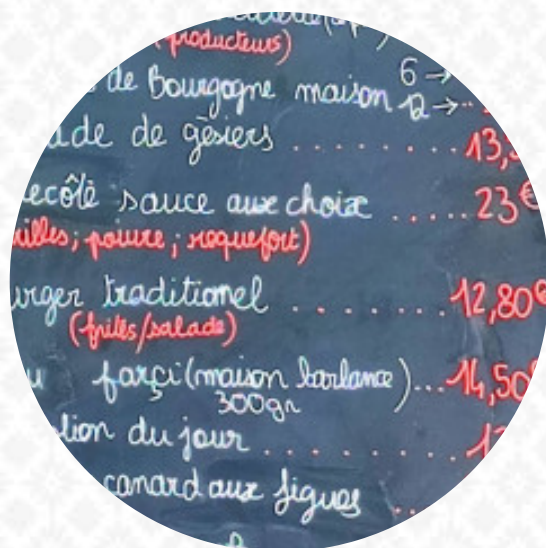 (producteurs)
de Bourgogne maison 6 →
12 →
de gésiers ........ 13,
sauce aux choix ..... 23€
poivre ; roquefort)
traditionel ........ 12,80€
(frites/salade)
farçi (maison barlance)... 14,50€
300gr
du jour ........
canard aux figues ..